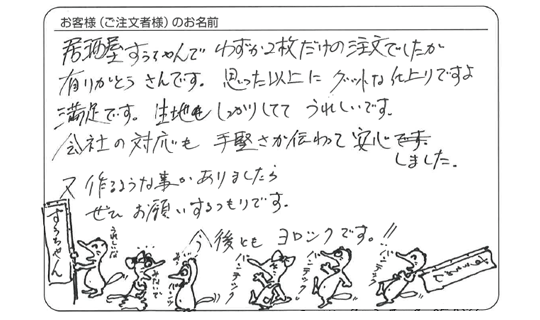 お客様（ご注文者様）のお名前
居酒屋すぅちゃんで わずか2枚だけの注文でしたが
有りがとう さんです。 思った以上に グットな仕上りですよ
満足です。 生地も しっかりしてて うれしいです。
会社の対応も 手堅さが伝わって 安心です
しました。
又 作るような事がありましたら
ぜひ お願いするつもりです。
今後とも ヨロシクです。!!
すぅちゃん